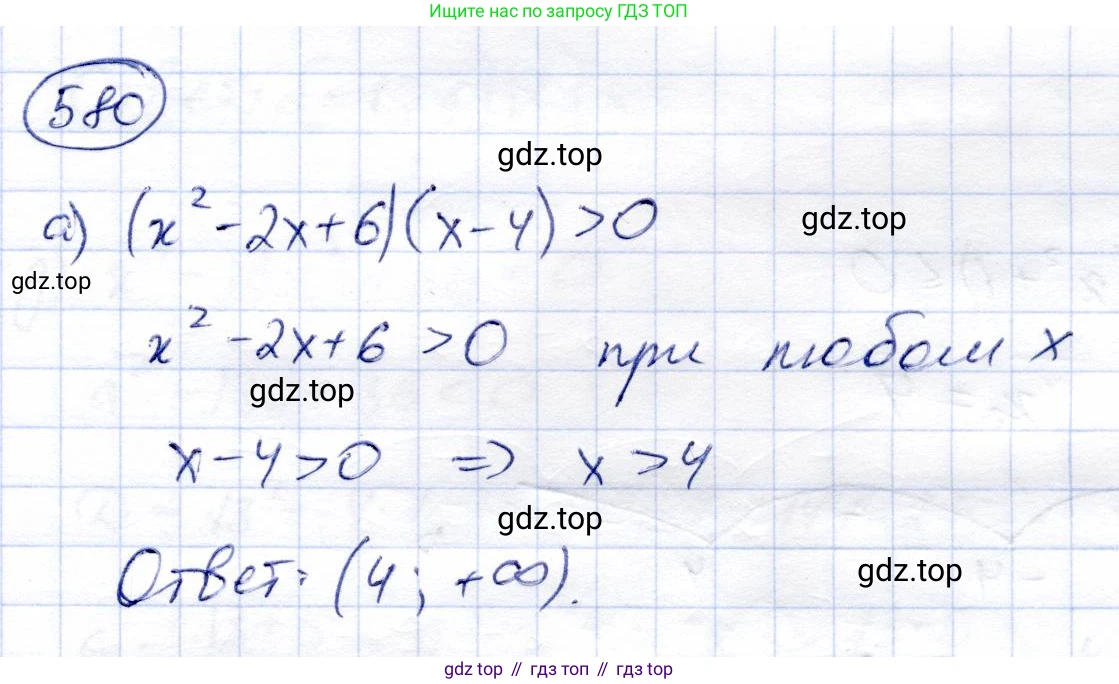 Ищите нас по запросу ГДЗ ТОП
580
gdz.top
а) (x² - 2x + 6)(x - 4) > 0
gdz.top
gdz.top
x² - 2x + 6 > 0 при любом x
gdz.top
x - 4 > 0 => x > 4
gdz.top
Ответ: (4; +∞).
gdz.top
gdz top // гдз топ // гдз top